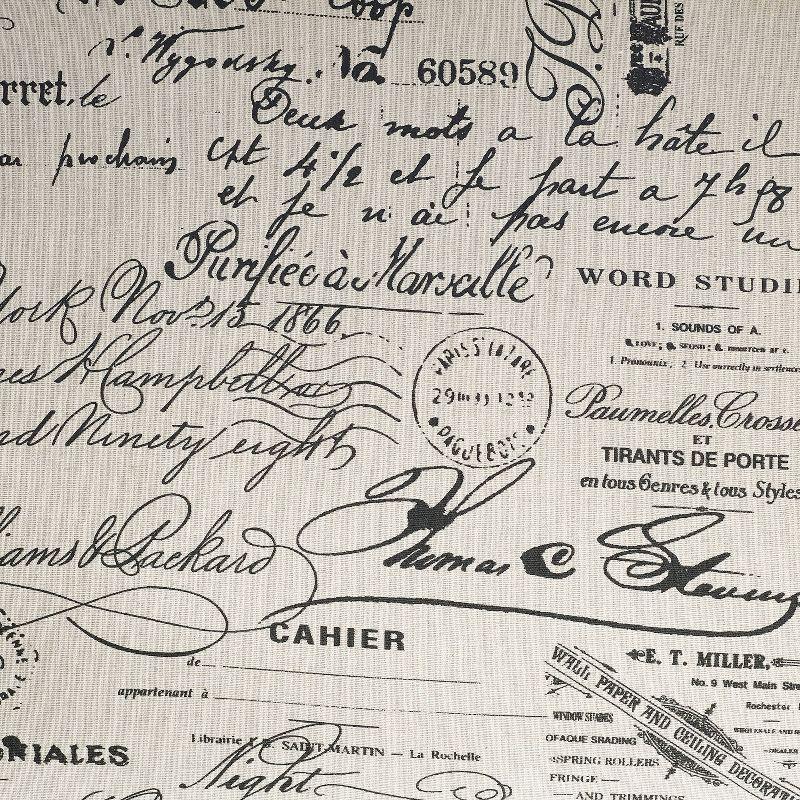 Coop
No. 60589
rret, le
Deux mots a la hâte il
prochain Cpt 4 1/2 et je part a 7 h
et je n'ai pas encore un
Purifiée à Marseille
WORD STUDI
York Nov. 15 1866
1. SOUNDS OF A.
1. Pronounce, 2. Use correctly in sentences
es H Campbell
29
PAQUEBOTS
nd Ninety eight
Paumelles, Crosse
ET
TIRANTS DE PORTE
en tous Genres & tous Styles
iams & Packard
Thomas C Stevens
CAHIER
de
appartenant à
E. T. MILLER,
No. 9 West Main Stre
Rochester
WALL PAPER AND CEILING DECORATI
WINDOW SHADES
OPAQUE SHADING
SPRING ROLLERS
FRINGE
AND TRIMMINGS
Librairie SAINT-MARTIN — La Rochelle
RIALES
Night
RUE DES